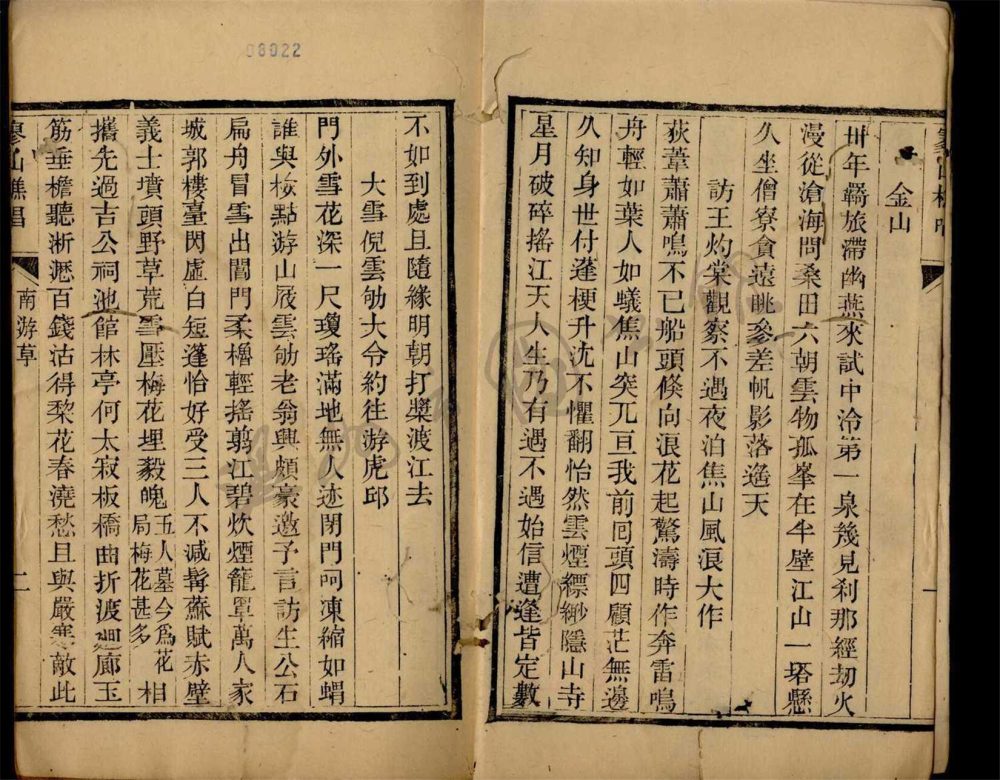 金山
卅年羇旅滯幽燕來試中泠第一泉幾見刹那經劫火
漫從滄海問桑田六朝雲物孤峯在半壁江山一塔懸
久坐僧寮貪遠眺參差帆影落遙天
訪王灼棠觀察不遇夜泊焦山風浪大作
荻葦蕭蕭鳴不已船頭倏向浪花起驚濤時作奔雷鳴
舟輕如葉人如蟻焦山突兀亘我前囘頭四顧茫無邊
久知身世付蓬梗升沈不懼翻怡然雲煙縹緲隱山寺
星月破碎搖江天人生乃有遇不遇始信遭逢皆定數
不如到處且隨緣明朝打槳渡江去
大雪倪雲劬大令約往游虎邱
門外雪花深一尺瓊瑤滿地無人迹閉門呵凍縮如蝟
誰與檢點游山屐雲劬老翁興頗豪邀予言訪生公石
扁舟冒雪出閶門柔櫓輕搖翦江碧炊煙籠罩萬人家
城郭樓臺閃虛白短篷恰好受三人不減髯蘇賦赤壁
義士墳頭野草荒雪壓梅花埋毅魄五人墓今爲花局梅花甚多相
攜先過吉公祠池館林亭何太寂板橋曲折渡廻廊玉
筋垂檐聽淅瀝百錢沽得棃花春澆愁且與嚴寒敵此
南游草
二
00022